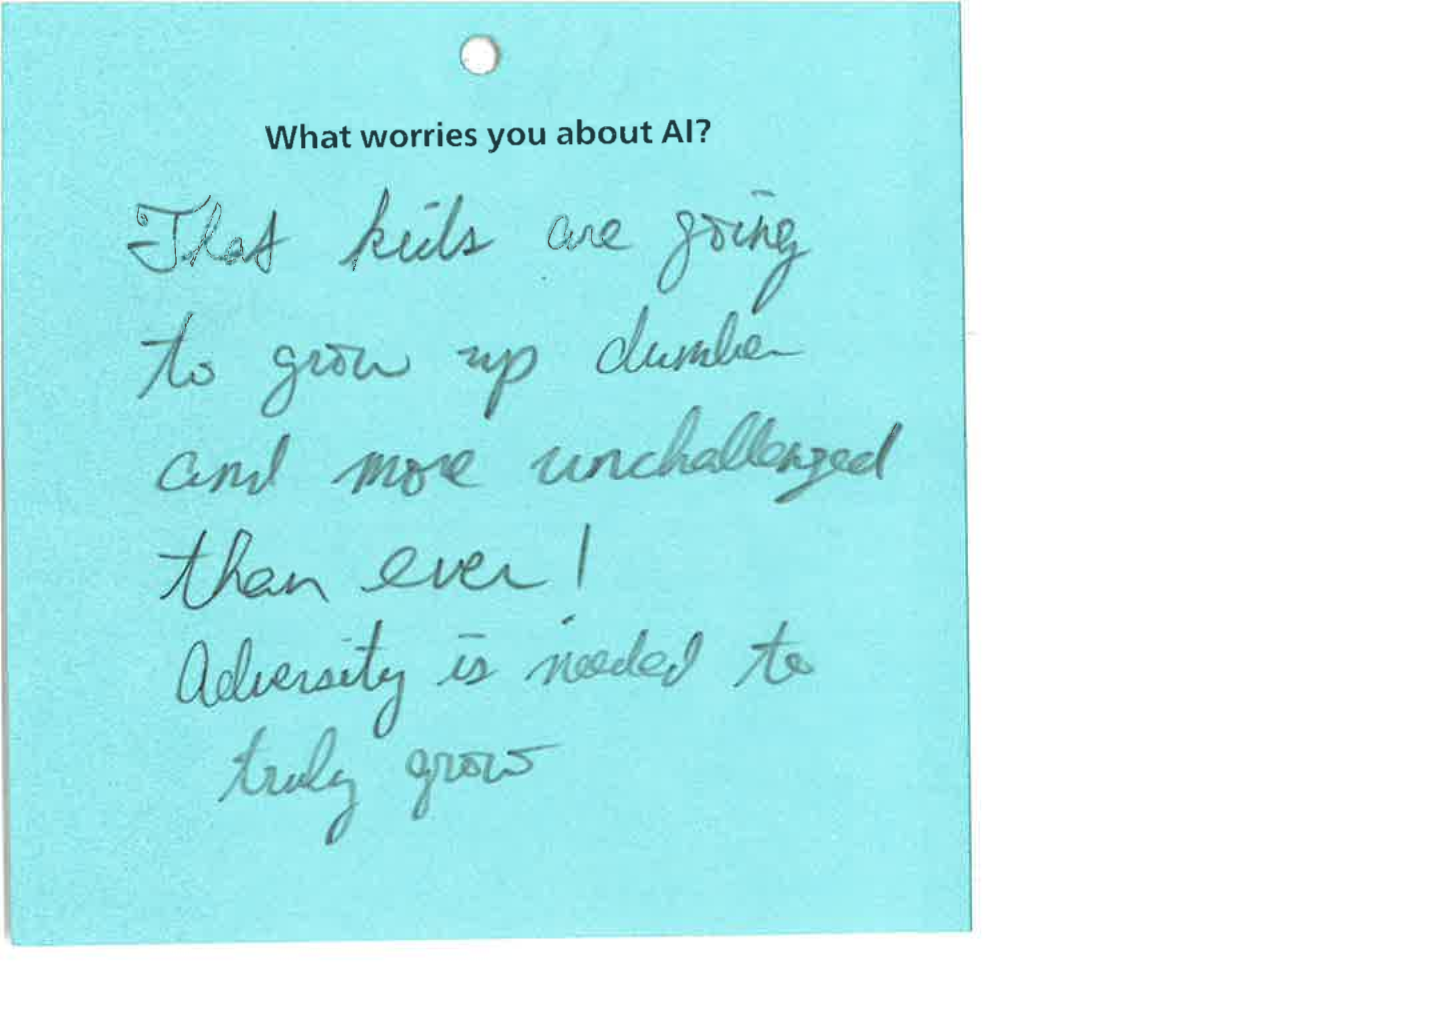 What worries you about AI?
That kids are going
to grow up dumber
and more unchallenged
than ever!
Adversity is needed to
truly grow